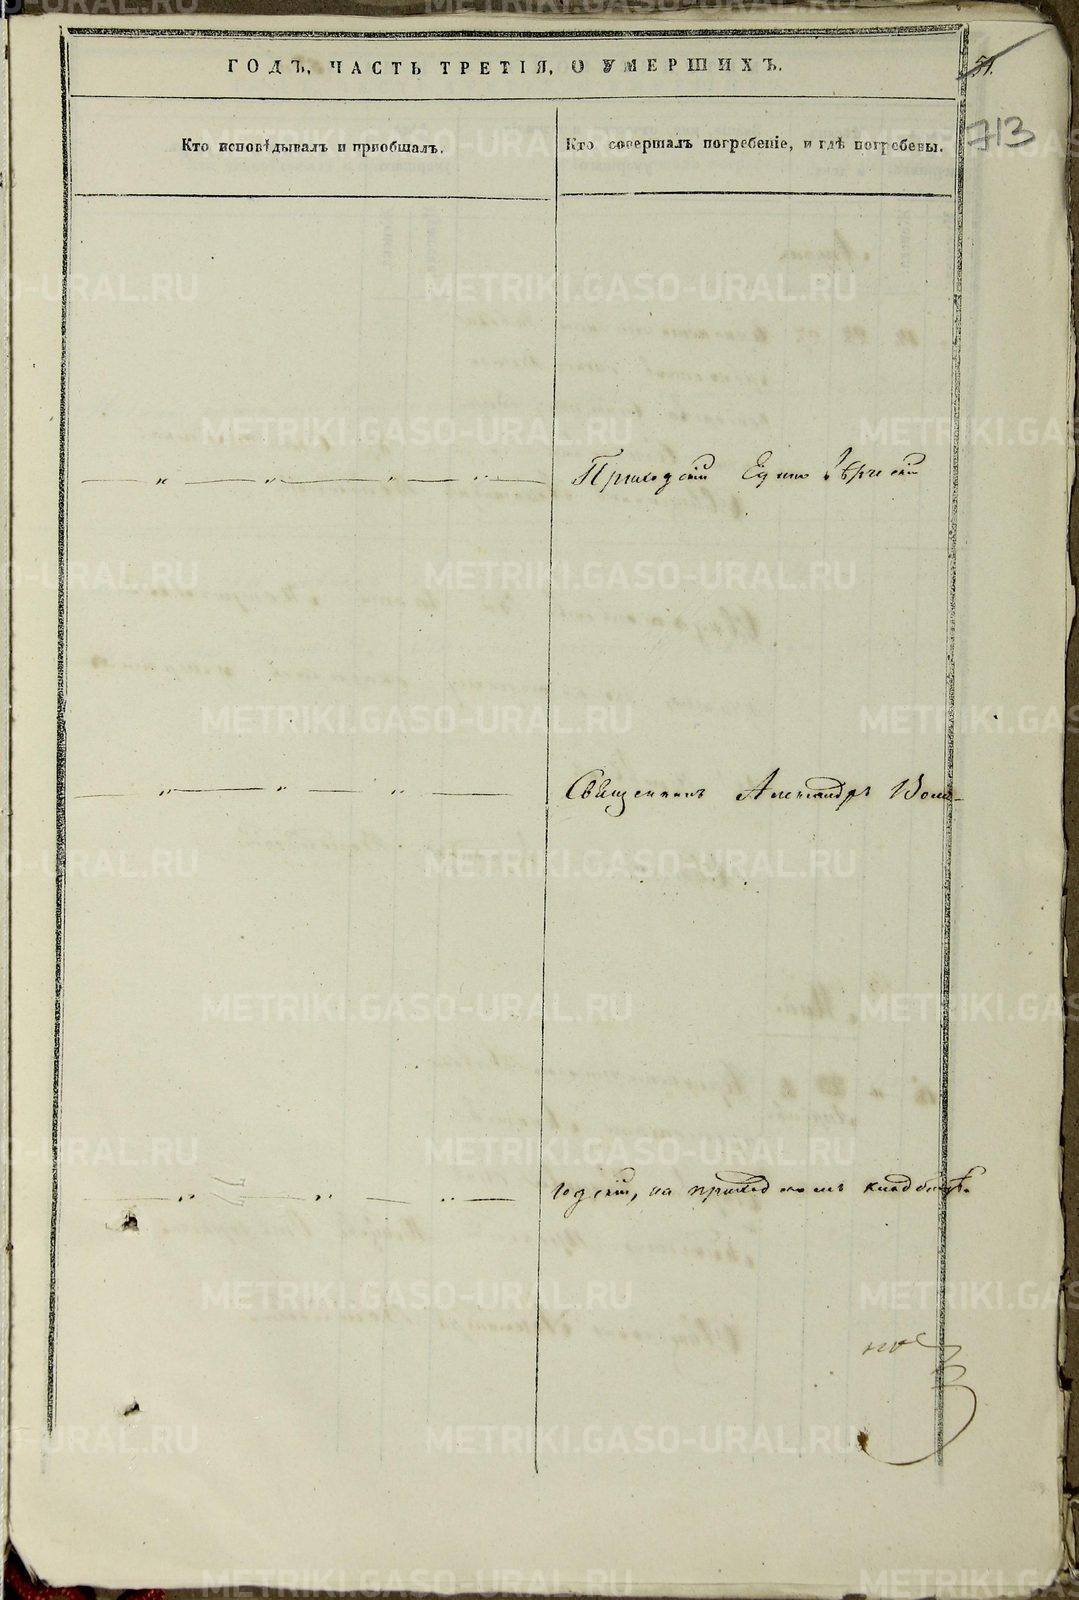 ГОДЪ, ЧАСТЬ ТРЕТІЯ, О УМЕРШИХЪ.
51.
713
Кто исповѣдывалъ и пріобщалъ.
Кто совершалъ погребеніе, и гдѣ погребены.
Приходскій Единовѣрческій
Священникъ Александръ Воло-
годскій, на приходскомъ кладбищѣ.
METRIKI.GASO-URAL.RU